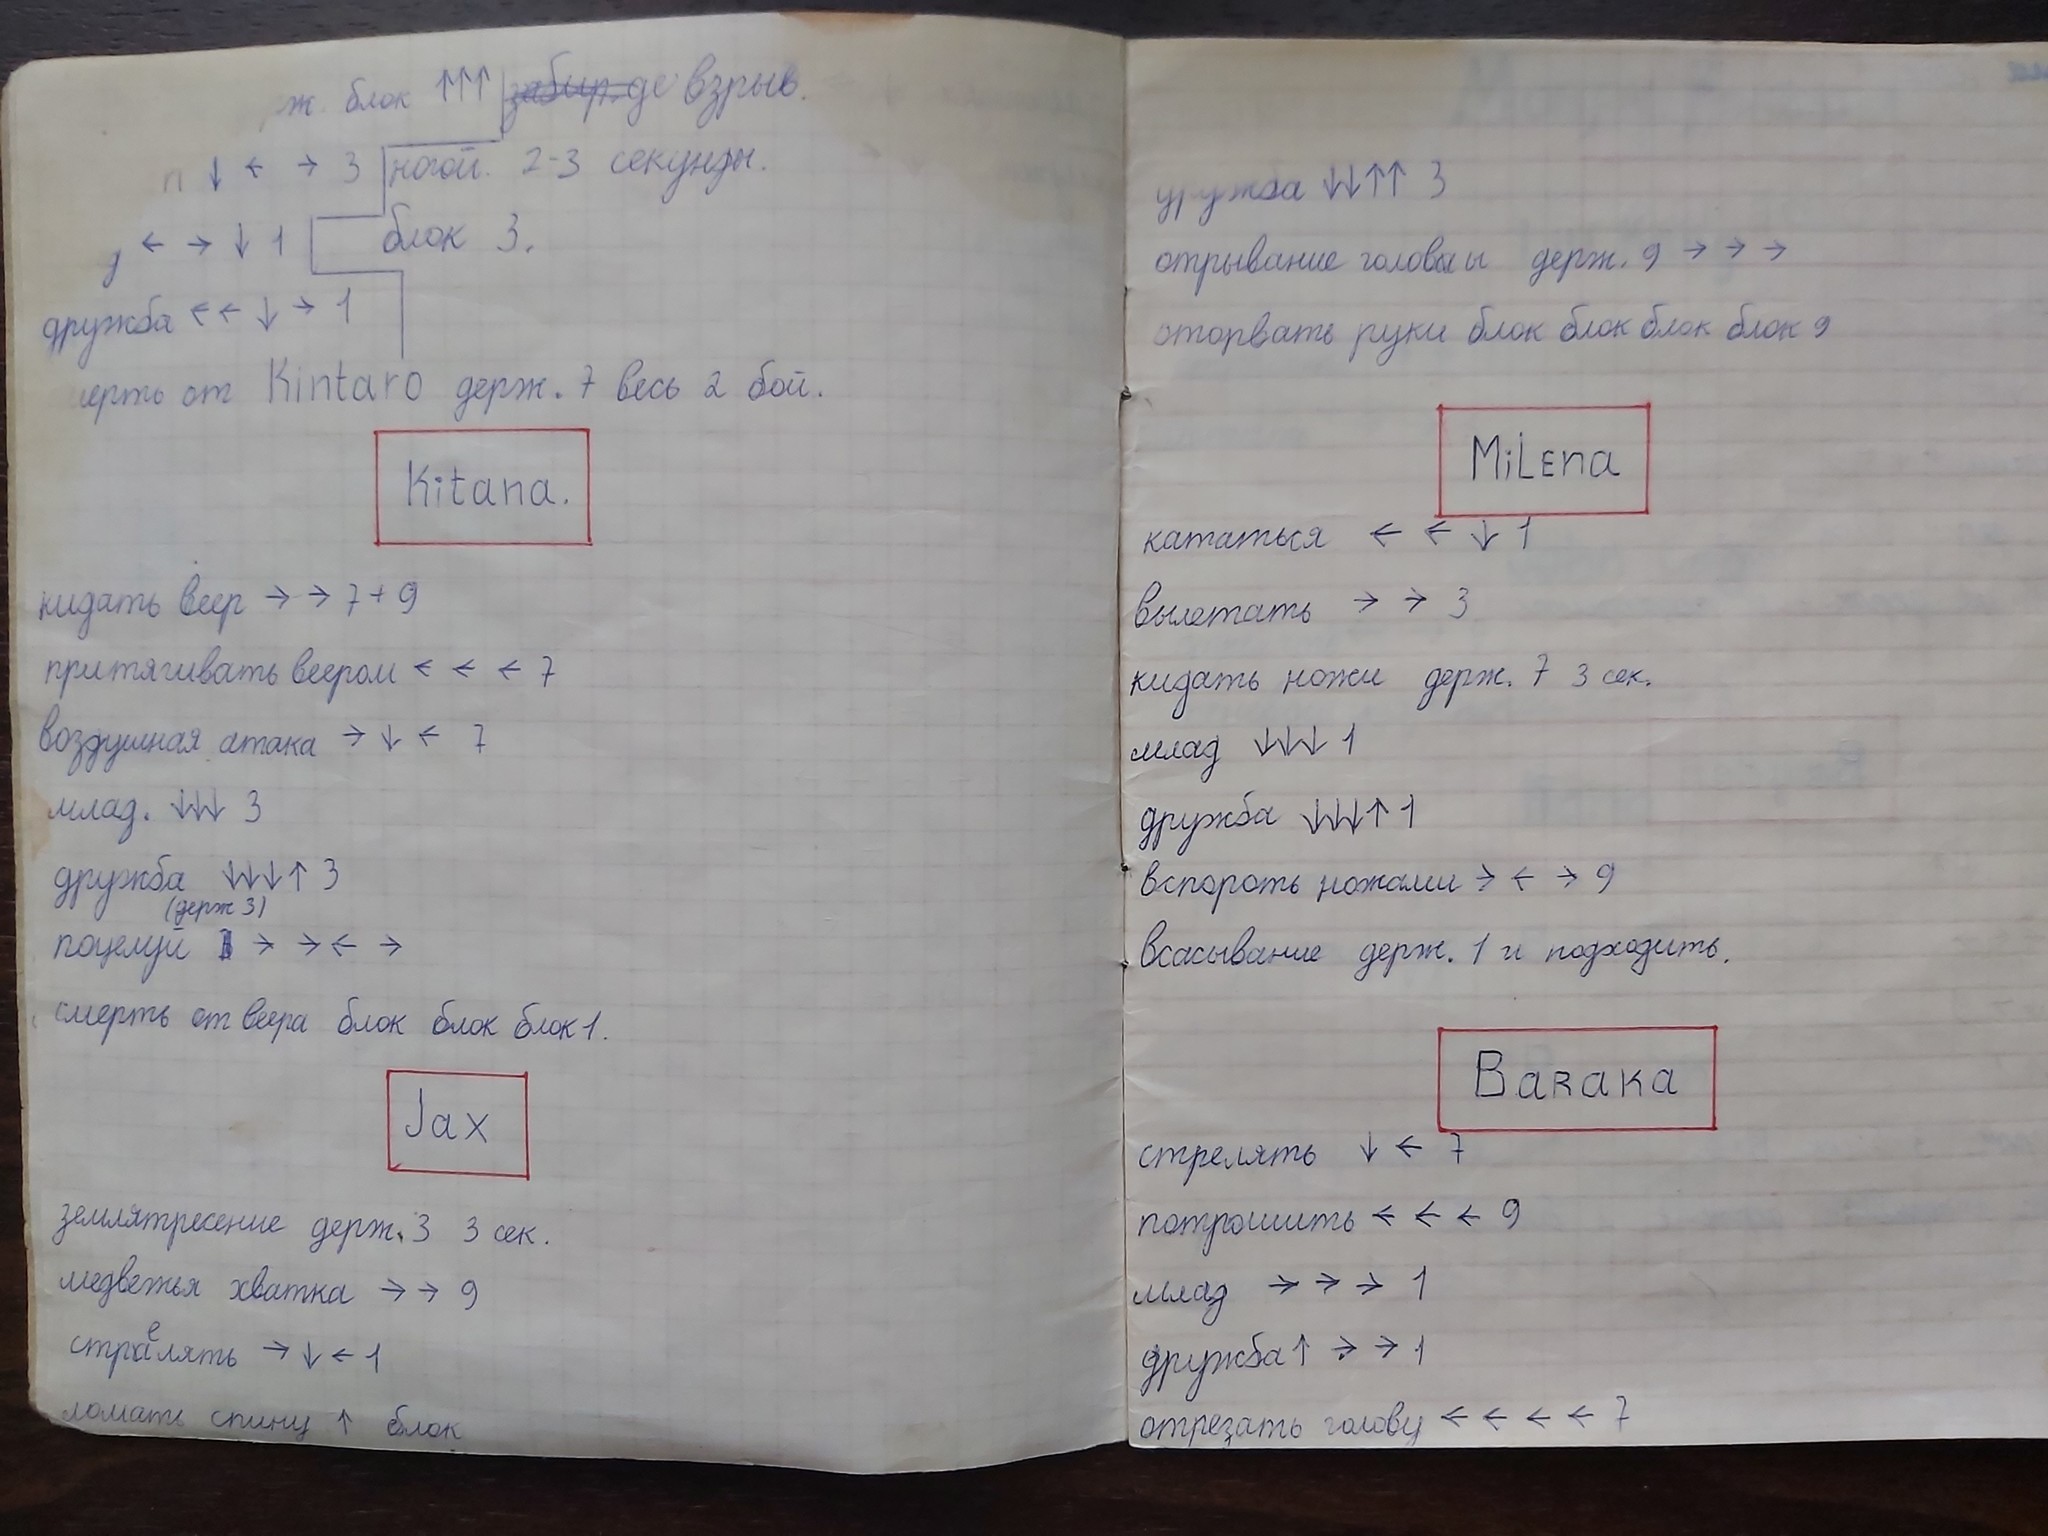 ж. блок ↑↑↑ де взрыв.
↓ ← → 3 ногой. 2-3 секунды.
← → ↓ 1 блок 3.
дружба ← ← ↓ → 1
ерть от Kintaro держ. 7 весь 2 бой.
Kitana.
кидать веер → → 7 + 9
притягивать веером ← ← ← 7
воздушная атака → ↓ ← 7
млад. ↓↓↓ 3
дружба ↓↓↓↑ 3
(держ 3)
поцелуй → → ← →
смерть от веера блок блок блок 1.
Jax
землятресение держ. 3 3 сек.
медвежья хватка → → 9
стрелять → ↓ ← 1
ломать спину ↑ блок
дружба ↓↓↑↑ 3
отрывание головы держ. 9 → → →
оторвать руки блок блок блок блок 9
MiLena
кататься ← ← ↓ 1
вылетать → → 3
кидать ножи держ. 7 3 сек.
млад ↓↓↓ 1
дружба ↓↓↓↑ 1
вспороть ножами → ← → 9
всасывание держ. 1 и подходить.
Baraka
стрелять ↓ ← 7
потрошить ← ← ← 9
млад → → → 1
дружба ↑ → → 1
отрезать голову ← ← ← ← 7